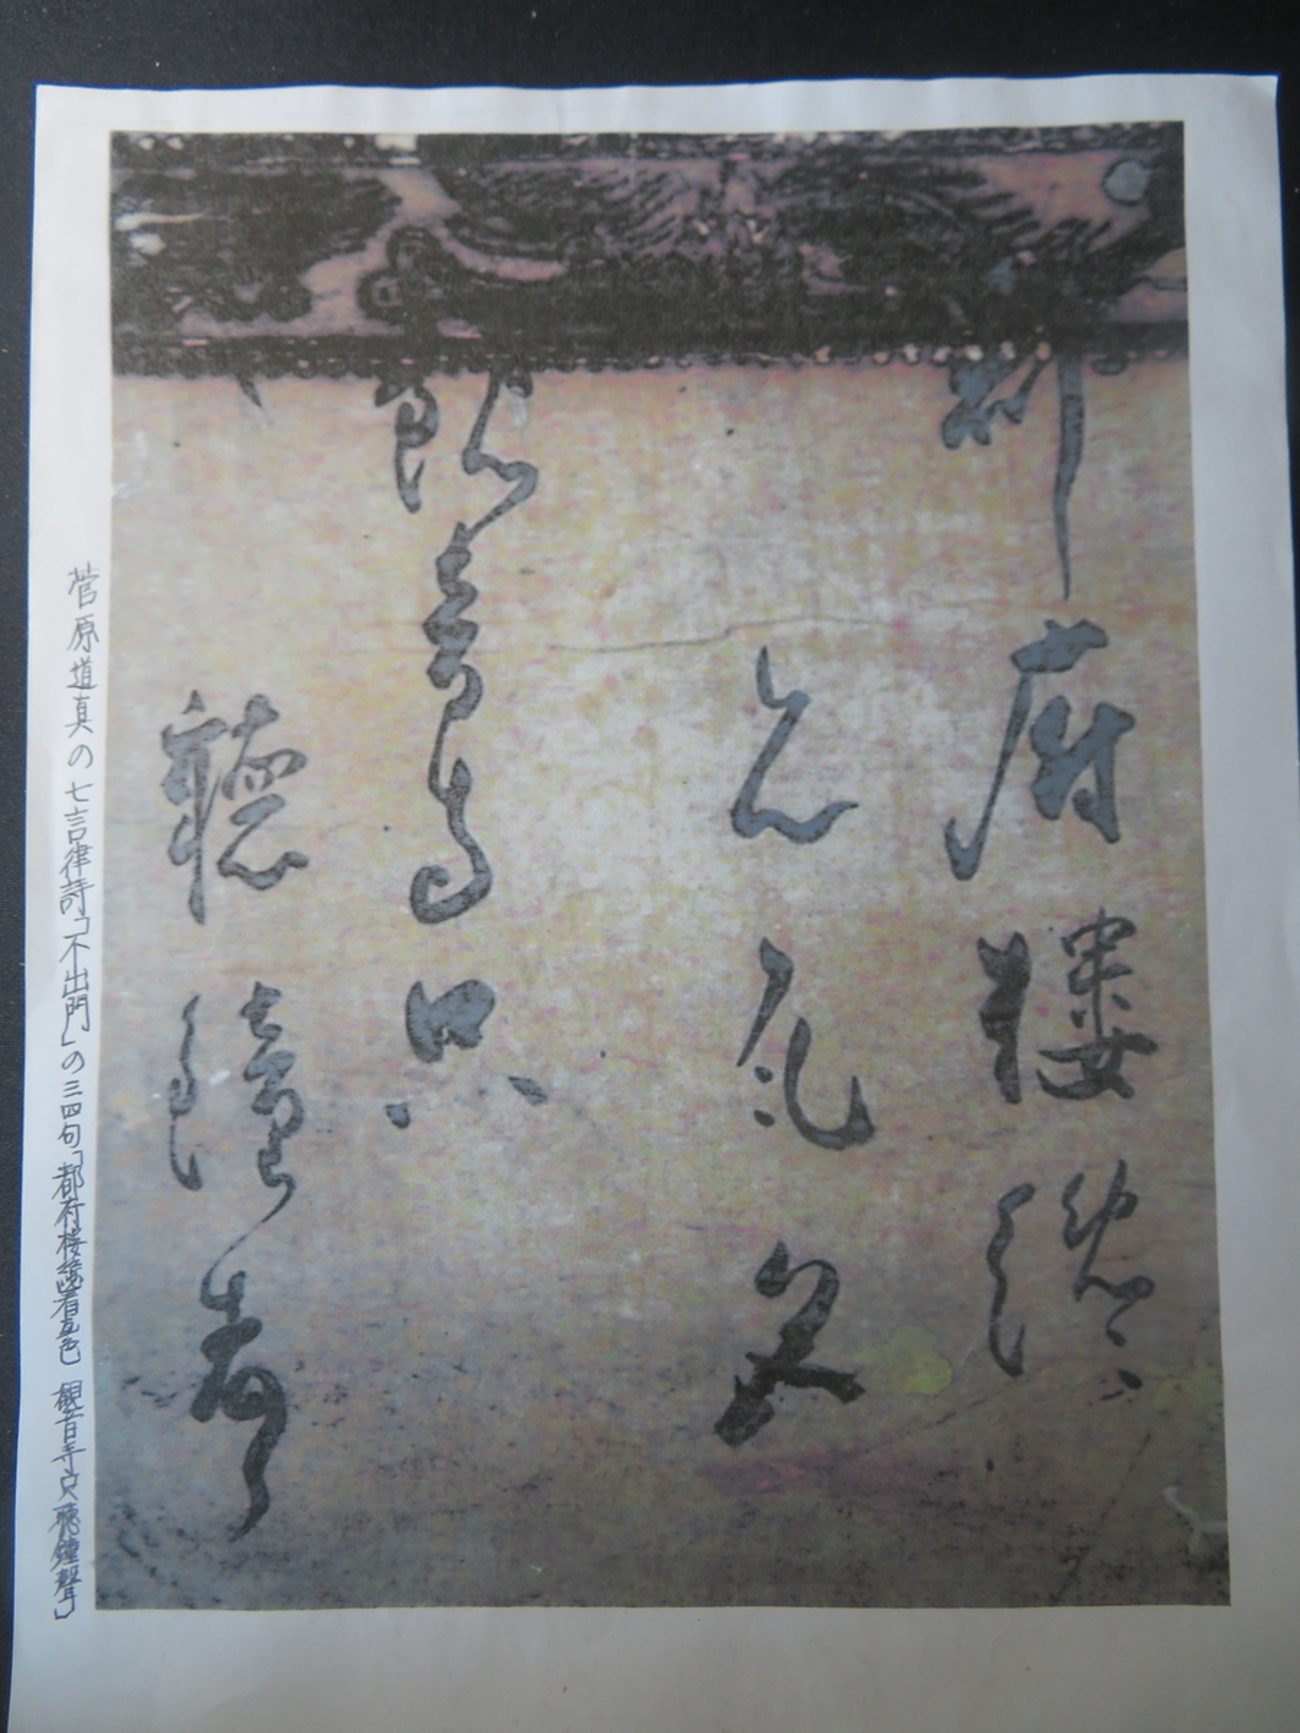 都府樓纔
看瓦色
観音寺只
聴鐘聲
菅原道真の七言律詩「不出門」の三四句「都府楼纔看瓦色 観音寺只聴鐘聲」